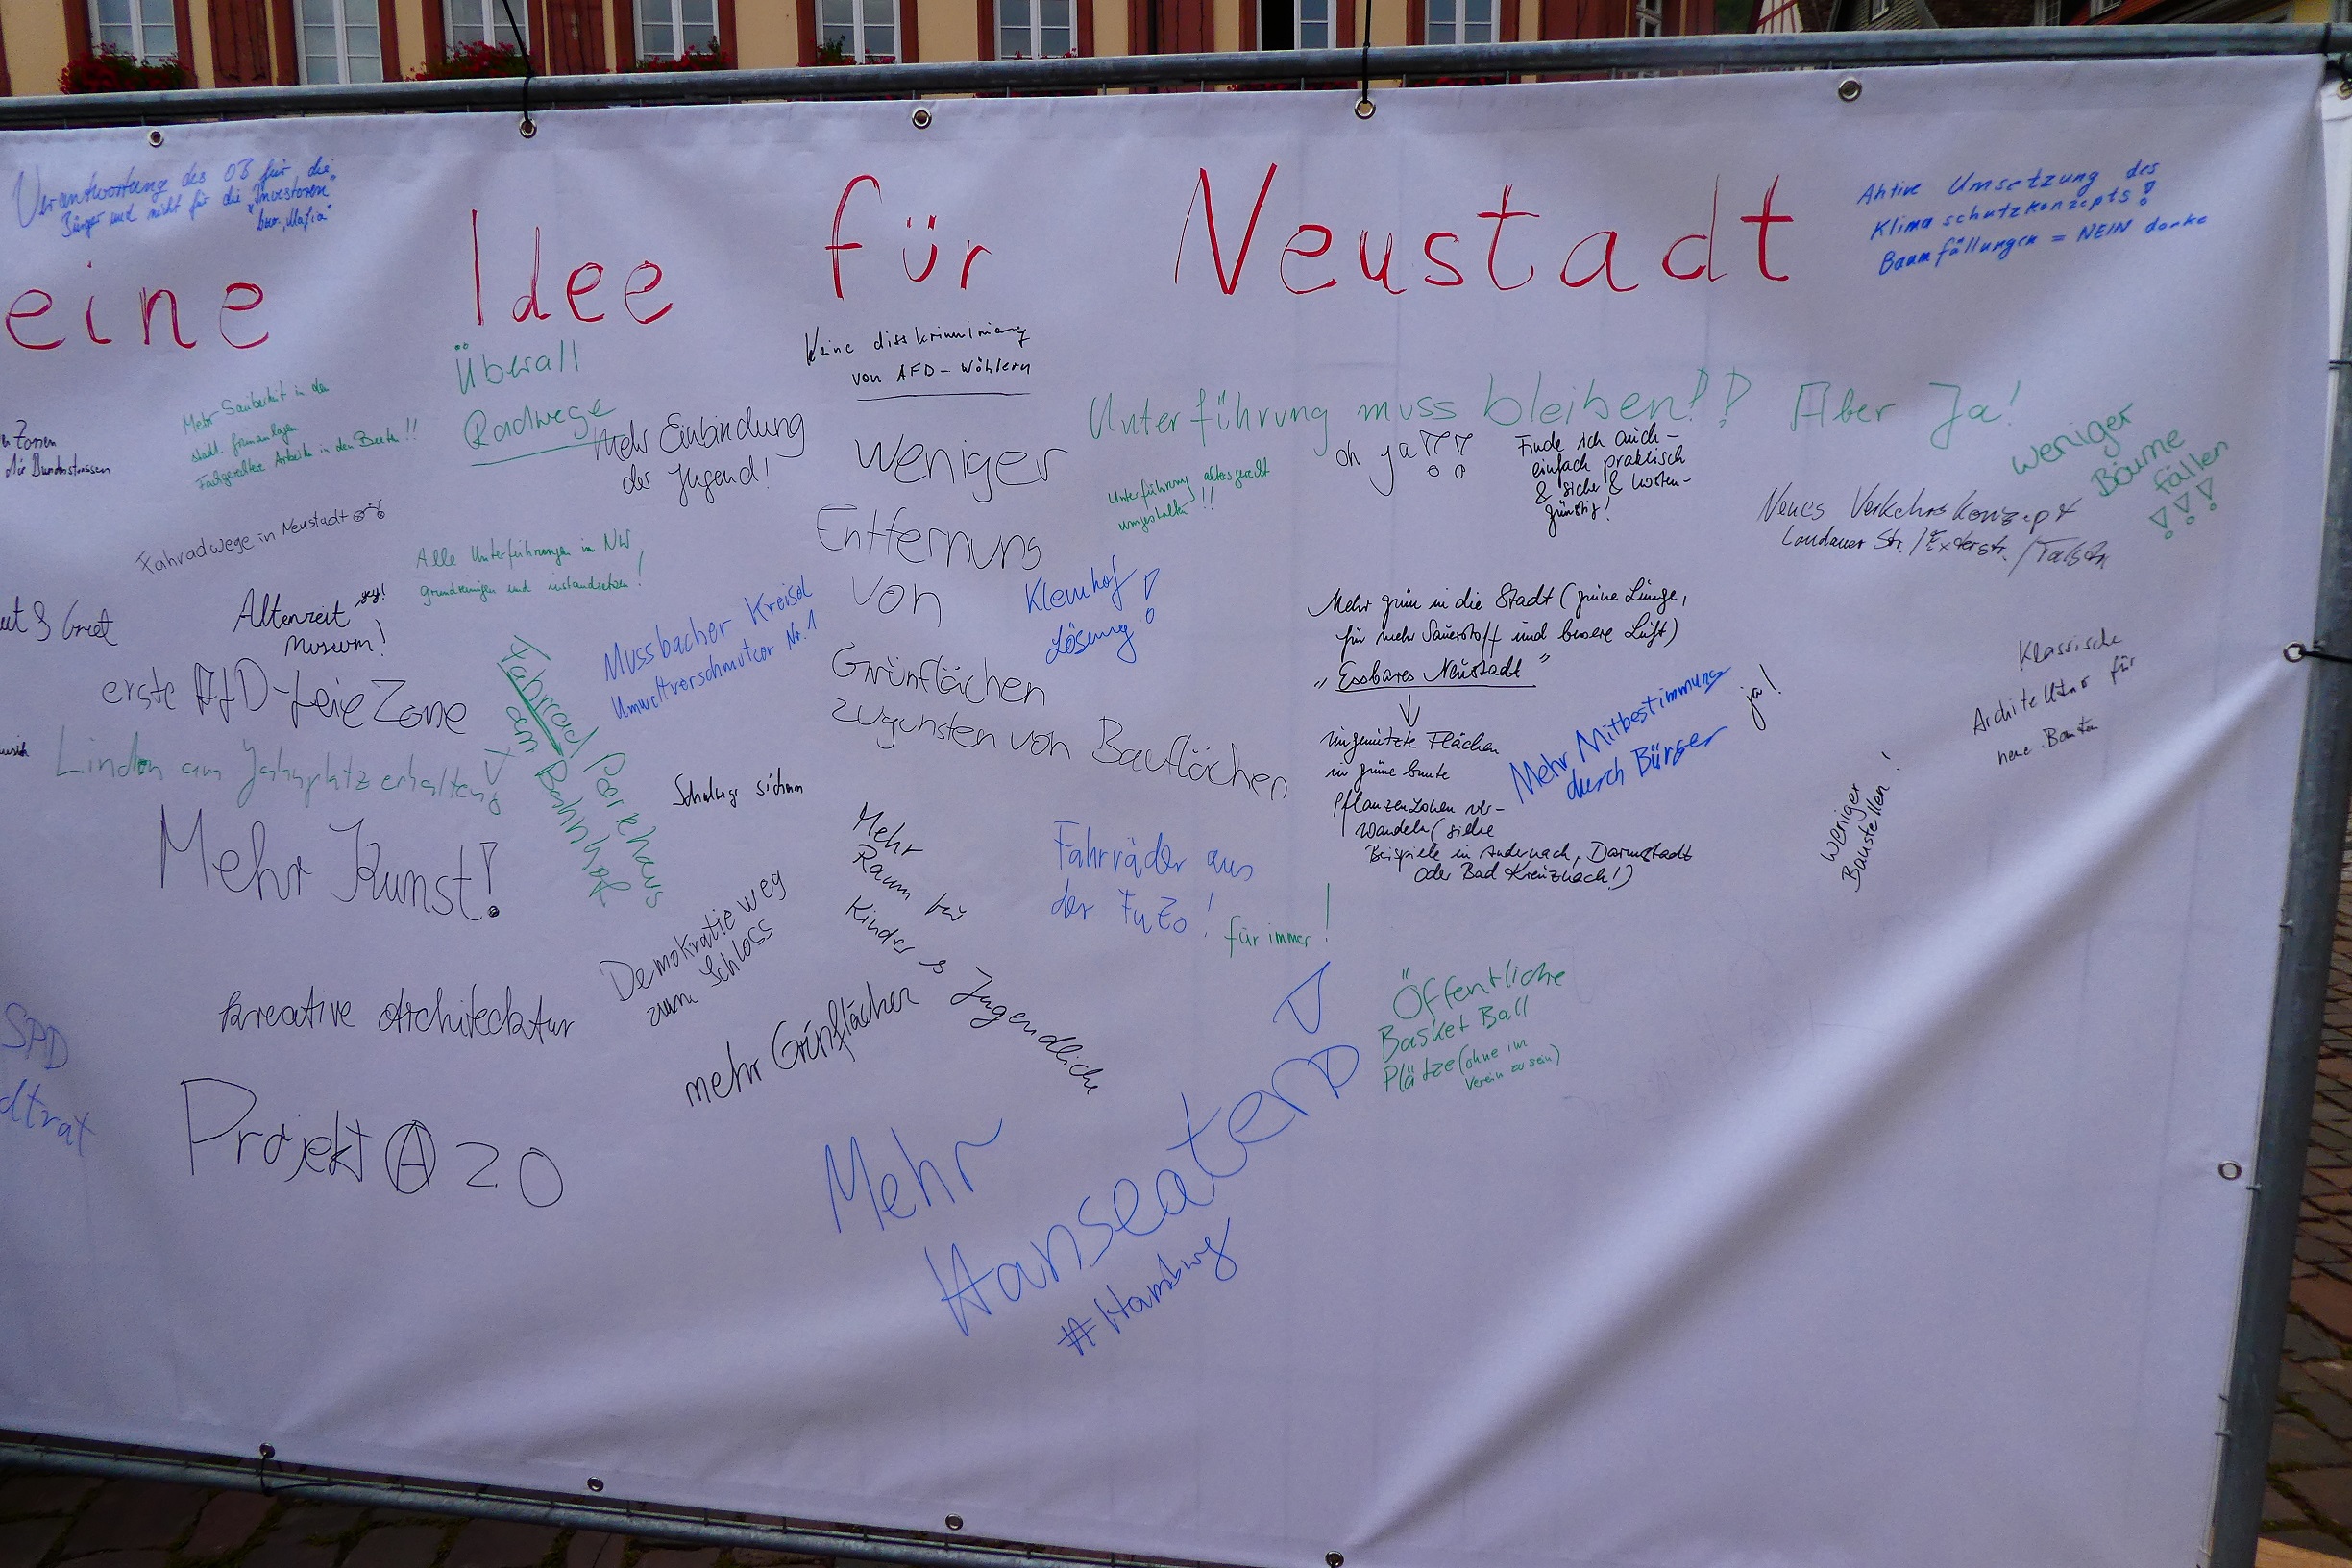 Verantwortung des OB für die
Bürger und nicht für die "Investoren"
bzw. "Mafia"
eine Idee für Neustadt
Aktive Umsetzung des
Klimaschutzkonzepts!
Baumfällungen = NEIN danke
Keine disskriminierung
von AFD-Wählern
Überall
Radwege
Mehr Sauberkeit in den
städt. Grünanlagen
Fachgerechtere Arbeiten in den Beeten!!
Zonen
die Bundesstrassen
Mehr Einbindung
der Jugend!
Weniger
Entfernung
von
Grünflächen
zugunsten von Bauflächen
Unterführung muss bleiben!! Aber Ja!
oh ja!!!
Finde ich auch –
einfach praktisch
& sicher & kosten-
günstig!
Unterführung altersgerecht
umgestalten!!
weniger
Bäume
fällen
!!!
Neues Verkehrskonzept
Landauer Str. / Exterstr. / Talstr.
Fahradwege in Neustadt
Alle Unterführungen in NW
grundreinigen und instandsetzen!
Altenzeit
Museum!
Mussbacher Kreisel
Umweltverschmutzer Nr. 1
Klemhof
Lösung!
Mehr grün in die Stadt (grüne Lunge,
für mehr Sauerstoff und bessere Luft)
"Essbares Neustadt"
ungenutzte Flächen
in grüne bunte
Pflanzenzonen ver-
wandeln (siehe
Beispiele in Andernach, Darmstadt
oder Bad Kreuznach!)
Mehr Mitbestimmung
durch Bürger
ja!
Klassische
Architektur für
neue Bauten
weniger
Baustellen!
erste AfD-freie Zone
Linden am Jahnplatz erhalten!
Fahrrad Parkhaus
am Bahnhof
Schulwege sichern
Mehr Kunst!
Mehr
Raum für
Kinder & Jugendliche
Fahrräder aus
der FuZo!
für immer!
Demokratieweg
zum Schloss
kreative Architecktur
mehr Grünflächen
Öffentliche
Basket Ball
Plätze (ohne im
Verein zu sein)
SPD
dtrat
Projekt Ⓐ 20
Mehr
Hanseaten
#Hamburg